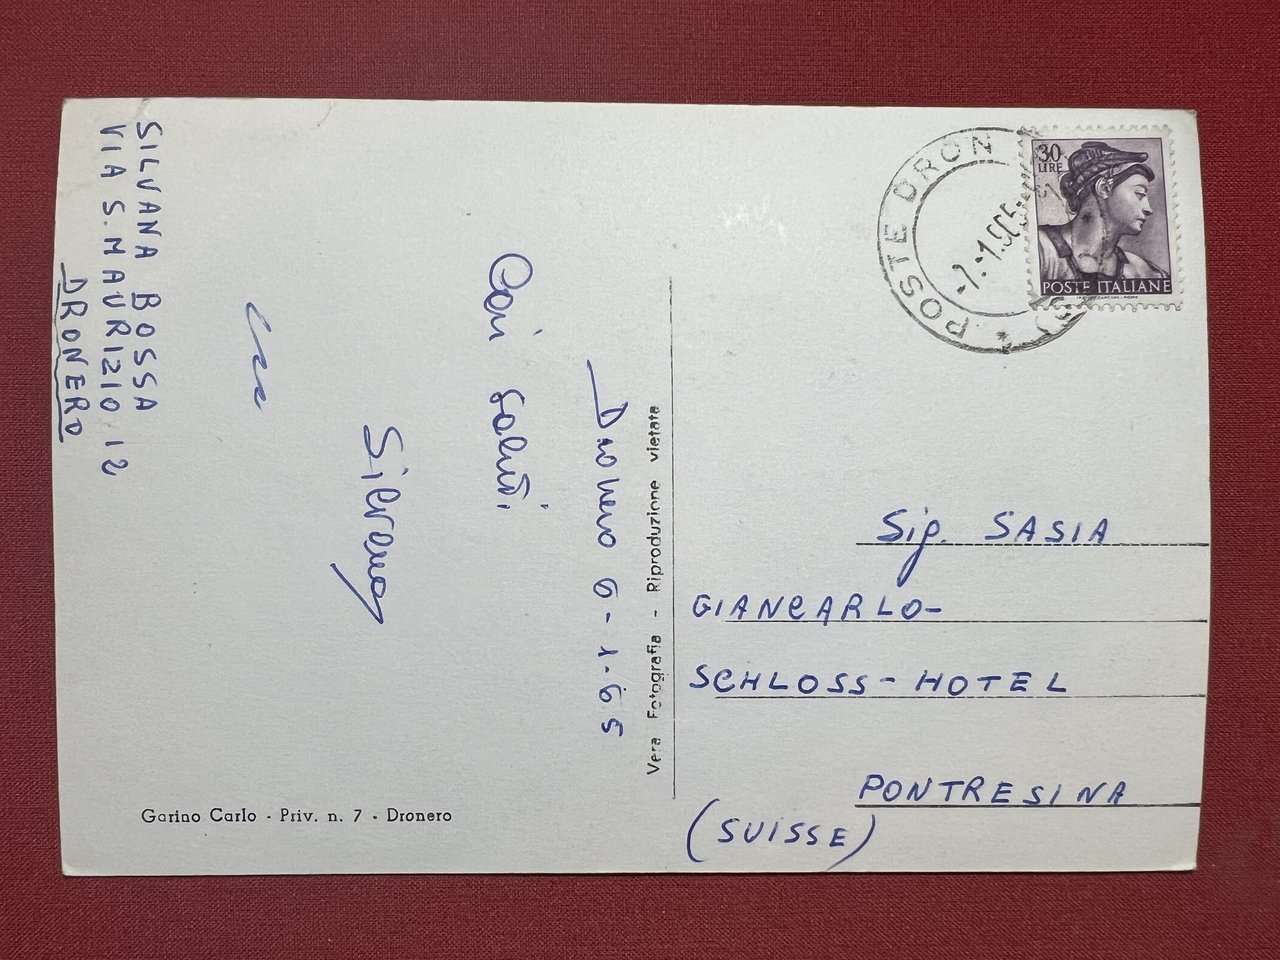 SILVANA BOSSA
VIA S. MAURIZIO 12
DRONERO
Dronero 6-1-65
Cari saluti
Silvana
Vera Fotografia - Riproduzione vietata
Garino Carlo - Priv. n. 7 - Dronero
POSTE DRON
-7.-1.965
30
LIRE
POSTE ITALIANE
Sig. SASIA
GIANCARLO-
SCHLOSS-HOTEL
PONTRESINA
(SUISSE)